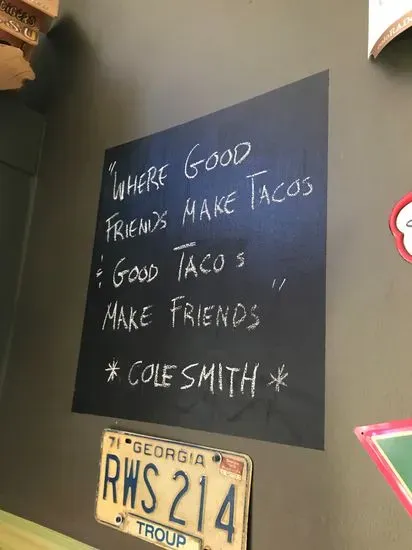 "WHERE GOOD
FRIENDS MAKE TACOS
& GOOD TACOS
MAKE FRIENDS"
* COLE SMITH *
71 GEORGIA
RWS 214
TROUP